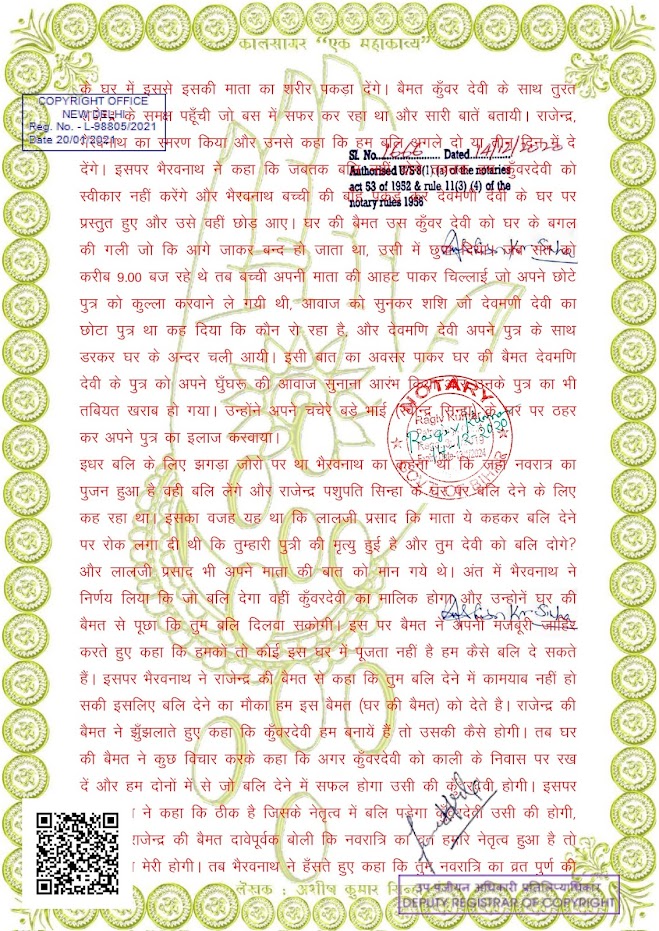 कालसागर “एक महाकाव्य”
के घर में इससे इसकी माता का शरीर पकड़ा देंगे। बैमत कुँवर देवी के साथ तुरत
COPYRIGHT OFFICE
NEW DELHI
Reg. No. - L-98805/2021
Date 20/04/2021
के समक्ष पहुँची जो बस में सफर कर रहा था और सारी बातें बतायी। राजेन्द्र,
भैरवनाथ का स्मरण किया और उनसे कहा कि हम बलि अगले दो या तीन दिन में दे
Sl. No. Dated
Authorised U/S 8(1) (a) of the notaries
act 53 of 1952 & rule 11(3) (4) of the
notary rules 1956
देंगे। इसपर भैरवनाथ ने कहा कि जबतक बलि कुँवरदेवी को
स्वीकार नहीं करेंगे और भैरवनाथ बच्ची की बाँह पकड़ कर देवमणी देवी के घर पर
प्रस्तुत हुए और उसे वहीं छोड़ आए। घर की बैमत उस कुँवर देवी को घर के बगल
की गली जो कि आगे जाकर बन्द हो जाता था, उसी में रात को
करीब 9.00 बज रहे थे तब बच्ची अपनी माता की आहट पाकर चिल्लाई जो अपने छोटे
पुत्र को कुल्ला करवाने ले गयी थी, आवाज को सुनकर शशि जो देवमणी देवी का
छोटा पुत्र था कह दिया कि कौन रो रहा है, और देवमणि देवी अपने पुत्र के साथ
डरकर घर के अन्दर चली आयी। इसी बात का अवसर पाकर घर की बैमत देवमणि
देवी के पुत्र को अपने घुँघरू की आवाज सुनाना आरंभ उनके पुत्र का भी
तबियत खराब हो गया। उन्होंने अपने चचेरे बड़े भाई सिन्हा के घर पर ठहर
कर अपने पुत्र का इलाज करवाया।
NOTARY
Ragiv Kumar
14-12-2020
इधर बलि के लिए झगड़ा जोरो पर था भैरवनाथ का कहना था कि जहाँ नवरात्र का
पुजन हुआ है वही बलि लेंगे और राजेन्द्र पशुपति सिन्हा के घर पर बलि देने के लिए
कह रहा था। इसका वजह यह था कि लालजी प्रसाद कि माता ये कहकर बलि देने
पर रोक लगा दी थी कि तुम्हारी पुत्री की मृत्यु हुई है और तुम देवी को बलि दोगे?
और लालजी प्रसाद भी अपने माता की बात को मान गये थे। अंत में भैरवनाथ ने
निर्णय लिया कि जो बलि देगा वहीं कुँवरदेवी का मालिक होगा और उन्होंने घर की
बैमत से पूछा कि तुम बलि दिलवा सकोगी। इस पर बैमत ने अपनी मजबूरी जाहिर
करते हुए कहा कि हमको तो कोई इस घर में पूजता नहीं है हम कैसे बलि दे सकते
हैं। इसपर भैरवनाथ ने राजेन्द्र की बैमत से कहा कि तुम बलि देने में कामयाब नहीं हो
सकी इसलिए बलि देने का मौका हम इस बैमत (घर की बैमत) को देते है। राजेन्द्र की
बैमत ने झुँझलाते हुए कहा कि कुँवरदेवी हम बनायें हैं तो उसकी कैसे होगी। तब घर
की बैमत ने कुछ विचार करके कहा कि अगर कुँवरदेवी को काली के निवास पर रख
दें और हम दोनों में से जो बलि देने में सफल होगा उसी की कुँवरदेवी होगी। इसपर
ने कहा कि ठीक है जिसके नेतृत्व में बलि पड़ेगा कुँवरदेवी उसी की होगी,
राजेन्द्र की बैमत दावेपूर्वक बोली कि नवरात्रि का हमारे नेतृत्व हुआ है तो
मेरी होगी। तब भैरवनाथ ने हँसते हुए कहा कि तुम नवरात्रि का व्रत पुर्ण की
लेखक : अभीष कुमार
उप पंजीयन अधिकारी प्रतिलिप्याधिकार
DEPUTY REGISTRAR OF COPYRIGHT